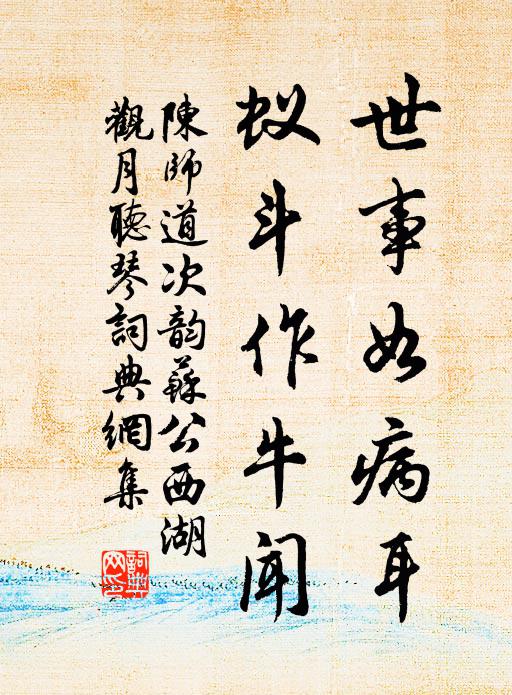 世事如病耳
蚁斗作牛闻
陳師道次韵蘇公西湖
觀月聽琴詞典網集